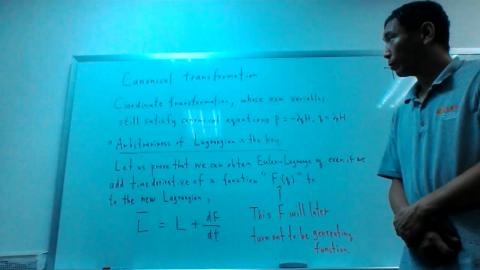 Canonical transformation
Coordinate transformation, whose new variables
still satisfy canonical equations ṗ = -∂qH, q̇ = ∂pH
"Arbitrariness of Lagrangian is the key
Let us prove that we can obtain Euler-Lagrange eq even if we
add time derivative of a function "F(q)" to
to the new Lagrangian,
L̄ = L + dF/dt
This F will later
turn out to be generating
function